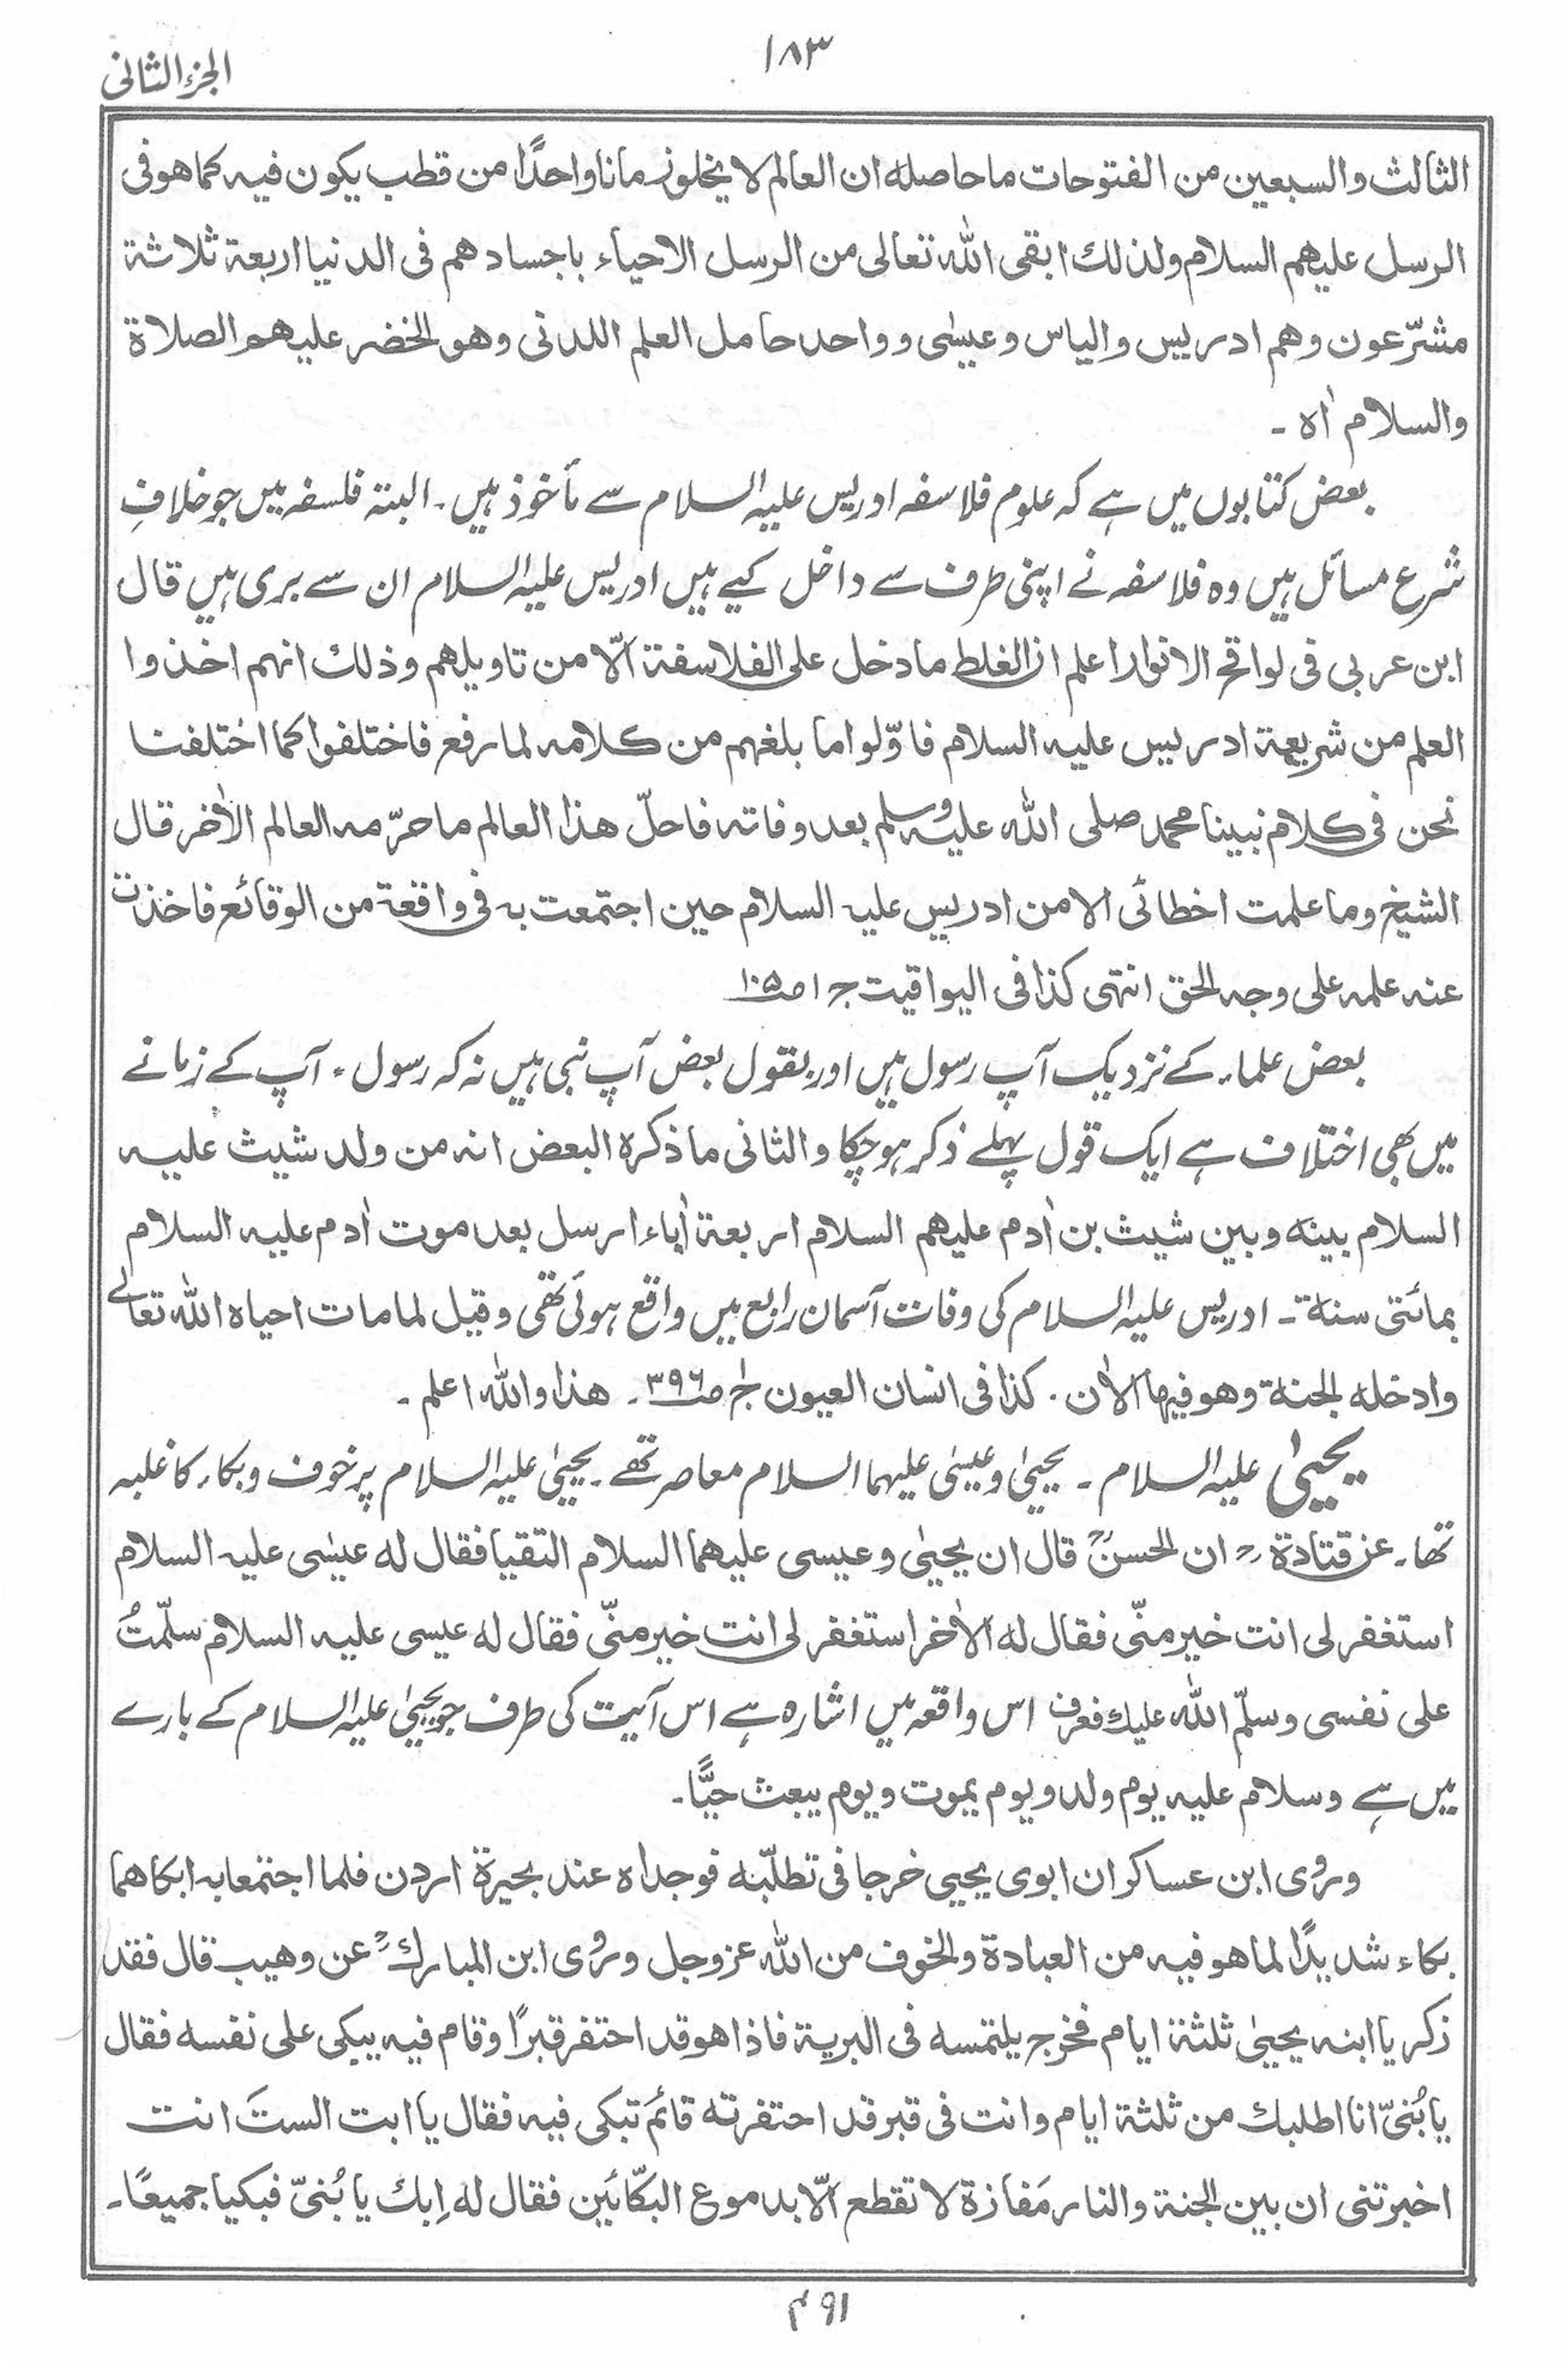 ١٨٣
الجزء الثانی
الثالث والسبعین من الفتوحات ما حاصله ان العالم لا یخلو زمانا واحدًا من قطب یکون فیه کما هو فی
الرسل علیهم السلام ولذلك ابقی الله تعالی من الرسل الاحیاء باجسادهم فی الدنیا اربعة ثلاثة
مشرّعون وهم ادریس والیاس وعیسٰی وواحد حامل العلم اللدنی وهو الخضر علیهم الصلاة
والسلام اٰه ۔
بعض کتابوں میں ہے کہ علوم فلاسفہ ادریس علیہ السلام سے مأخوذ ہیں۔ البتہ فلسفہ میں جو خلافِ
شرع مسائل ہیں وہ فلاسفہ نے اپنی طرف سے داخل کیے ہیں ادریس علیہ السلام ان سے بری ہیں قال
ابن عربی فی لواقح الانوار اعلم ان الغلط ما دخل علی الفلاسفة الّا من تاویلهم وذلك انهم اخذوا
العلم من شریعة ادریس علیه السلام فاوّلوا ما بلغهم من کلامه لما رفع فاختلفوا کما اختلفنا
نحن فی کلام نبینا محمد صلی الله علیه وسلم بعد وفاته فاحلّ هذا العالم ما حرّمه العالم الاٰخر قال
الشیخ وما علمت اخطائی الا من ادریس علیه السلام حین اجتمعت به فی واقعة من الوقائع فاخذت
عنه علمه علی وجه الحق انتهی کذا فی الیواقیت ج ١ ص ١٠٥
بعض علماء کے نزدیک آپ رسول ہیں اور بقول بعض آپ نبی ہیں نہ کہ رسول۔ آپ کے زمانے
میں بھی اختلاف ہے ایک قول پہلے ذکر ہوچکا والثانی ما ذکره البعض انه من ولد شیث علیه
السلام بینه وبین شیث بن اٰدم علیهم السلام اربعة اٰباء ارسل بعد موت اٰدم علیه السلام
بمائتی سنة ۔ ادریس علیہ السلام کی وفات آسمان رابع میں واقع ہوئی تھی وقیل لما مات احیاه الله تعالٰی
وادخله الجنة وهو فیها الاٰن۔ کذا فی انسان العیون ج١ ص ٣٩٦۔ هذا والله اعلم ۔
یحییٰ علیہ السلام ۔ یحییٰ وعیسٰی علیہما السلام معاصر تھے۔ یحییٰ علیہ السلام پر خوف وبکاء کا غلبہ
تھا۔ عن قتادة ؒ ان الحسنؒ قال ان یحییٰ وعیسی علیهما السلام التقیا فقال له عیسٰی علیه السلام
استغفر لی انت خیر منّی فقال له الاٰخر استغفر لی انت خیر منّی فقال له عیسی علیه السلام سلّمتُ
علی نفسی وسلّم الله علیك فعرف اس واقعہ میں اشارہ ہے اس آیت کی طرف جو یحییٰ علیہ السلام کے بارے
میں ہے وسلام علیه یوم ولد ویوم یموت ویوم یبعث حیًّا۔
وروٰی ابن عساکر ان ابوی یحیی خرجا فی تطلّبه فوجداه عند بحیرة اردن فلما اجتمعا به ابکاهما
بکاء شدیدًا لما هو فیه من العبادة والخوف من الله عز وجل وروٰی ابن المبارك ؒ عن وهیب قال فقد
زکریا ابنه یحییٰ ثلثة ایام فخرج یلتمسه فی البریة فاذا هو قد احتفر قبرًا وقام فیه یبکی علی نفسه فقال
یا بُنیّ انا اطلبك من ثلثة ایام وانت فی قبر قد احتفرته قائم تبکی فیه فقال یا ابت الستَ انت
اخبرتنی ان بین الجنة والنار مَفازة لا تقطع الّا بدموع البکّائین فقال له اِبك یا بُنیّ فبکیا جمیعًا۔